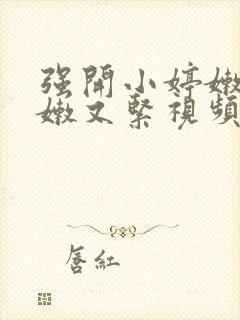 强開小婷嫩
嫩又緊視頻
唇紅